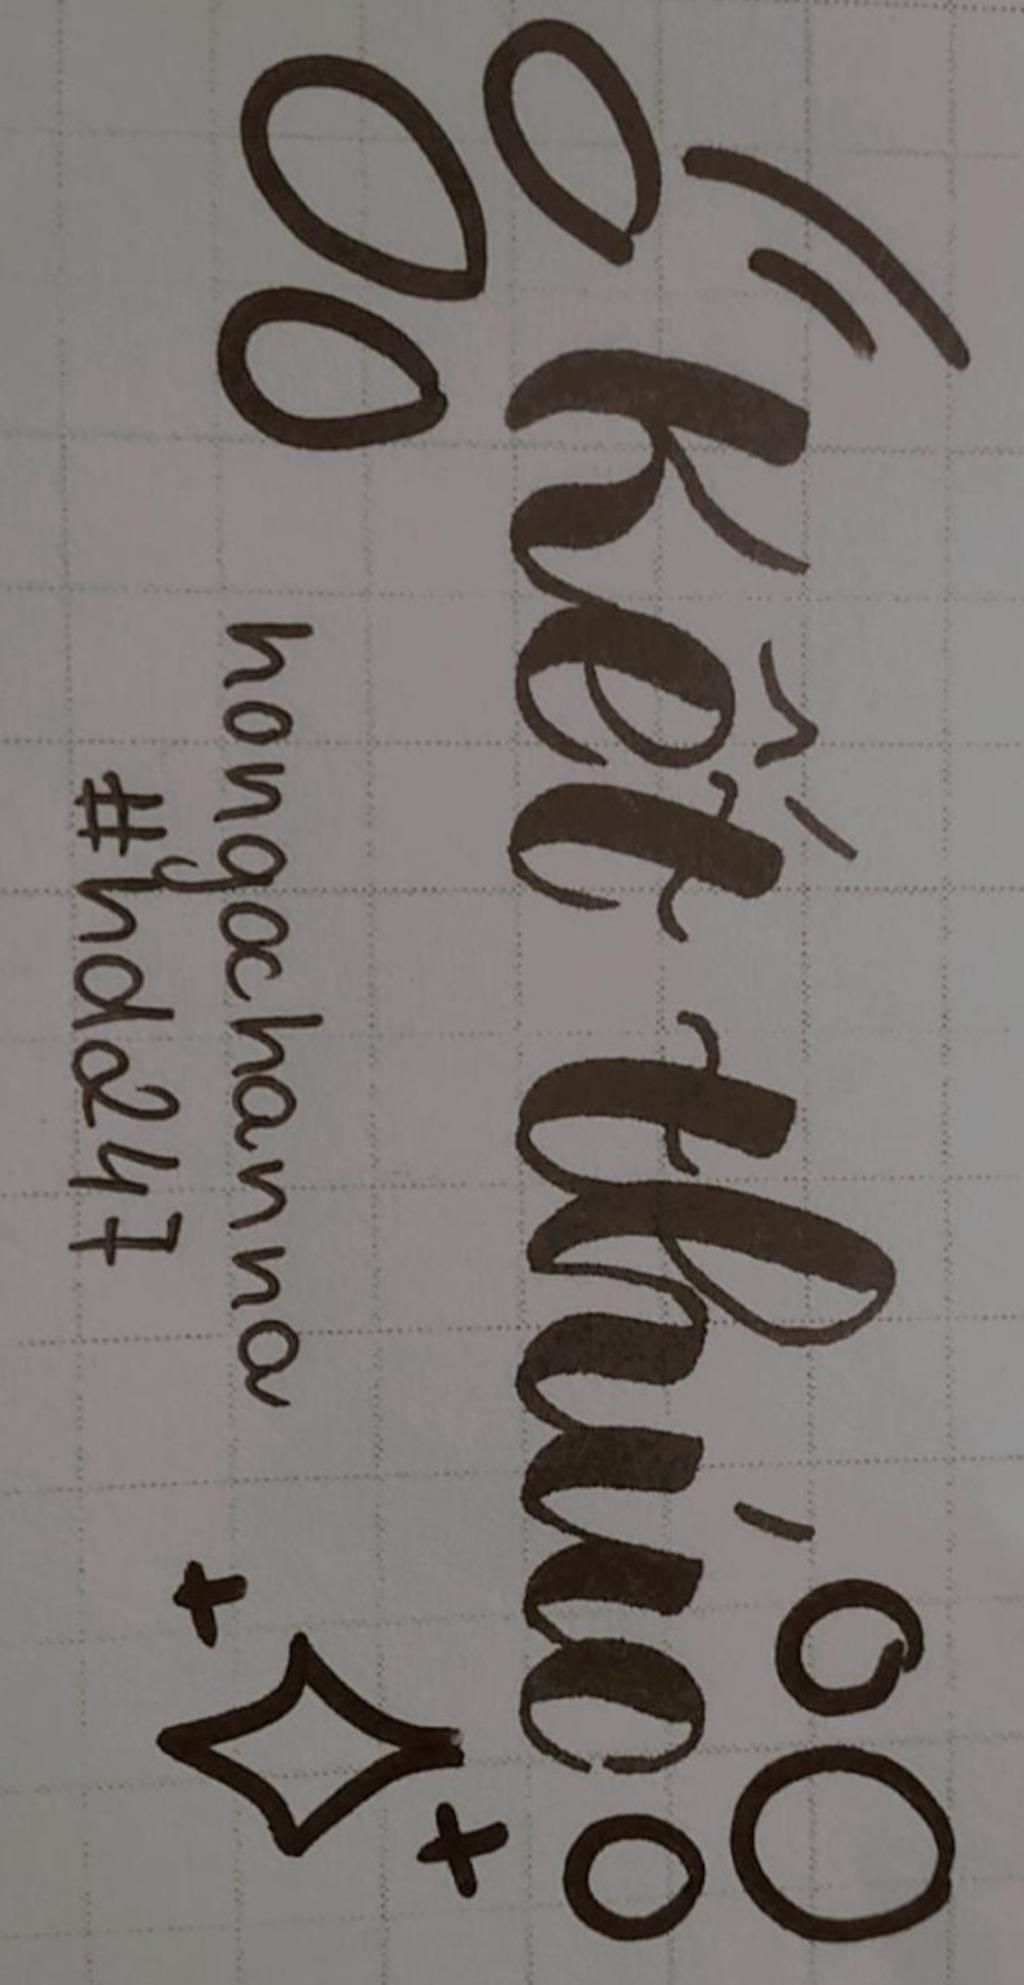 Kết thúc
hongachanna
#hd247